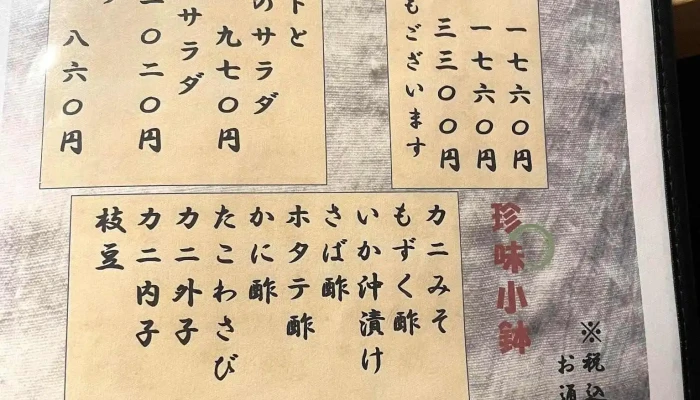 一七六〇円
一七六〇円
三三〇〇円
もございます
トと
のサラダ
九七〇円
サラダ
一〇二〇円
八六〇円
珍味小鉢
カニみそ
もずく酢
いか沖漬け
さば酢
ホタテ酢
かに酢
たこわさび
カニ外子
カニ内子
枝豆
※税込
お通